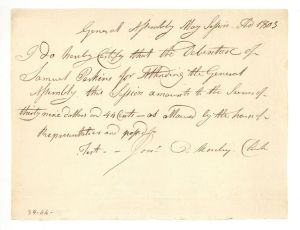 General Assembly May Session AD 1803
I do hereby Certify that the Debenture of
Samuel Perkins for Attending the General
Assembly this Session amounts to the Sum of
thirty nine dollars and 44 Cents – as allowed by the house of
Representatives and
Test –
39.44 –